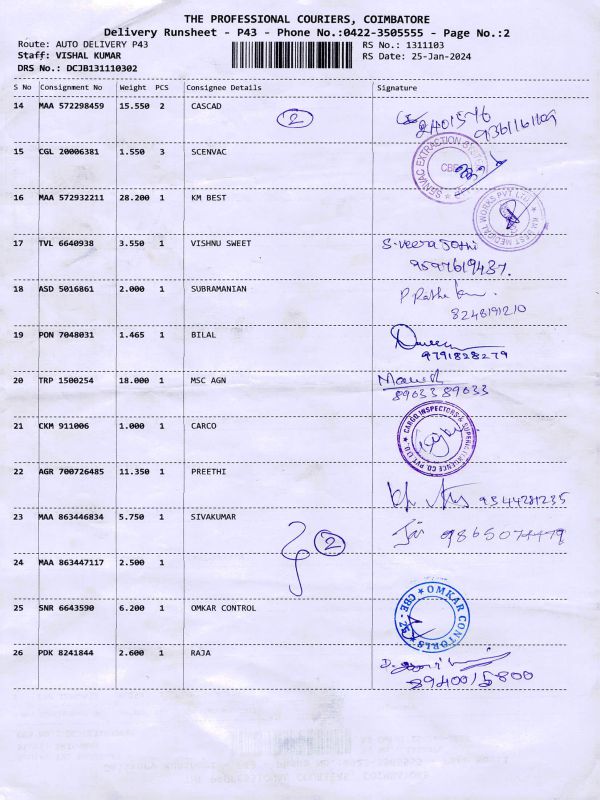 THE PROFESSIONAL COURIERS, COIMBATORE
Delivery Runsheet - P43 - Phone No.:0422-3505555 - Page No.:2
Route: AUTO DELIVERY P43 RS No.: 1311103
Staff: VISHAL KUMAR RS Date: 25-Jan-2024
DRS No.: DCJB131110302
S No Consignment No Weight PCS Consignee Details Signature
14 MAA 572298459 15.550 2 CASCAD
2
2401576
9361161109
15 CGL 20006381 1.550 3 SCENVAC
CBE
16 MAA 572932211 28.200 1 KM BEST
KM BEST MEDICAL WORKS PVT LTD
17 TVL 6640938 3.550 1 VISHNU SWEET S. Veera Jothi
9597619437.
18 ASD 5016861 2.000 1 SUBRAMANIAN
8248191210
19 PON 7048031 1.465 1 BILAL
9791828279
20 TRP 1500254 18.000 1 MSC AGN
89033 89033
21 CKM 911006 1.000 1 CARCO
CARGO INSPECTORS & SUPERINTENDENCE CO PVT LTD.
22 AGR 700726485 11.350 1 PREETHI
9344281235
23 MAA 863446834 5.750 1 SIVAKUMAR
9865074479
2
24 MAA 863447117 2.500 1
25 SNR 6643590 6.200 1 OMKAR CONTROL
OMKAR CONTORLS CBE -
26 PDK 8241844 2.600 1 RAJA
8940015800